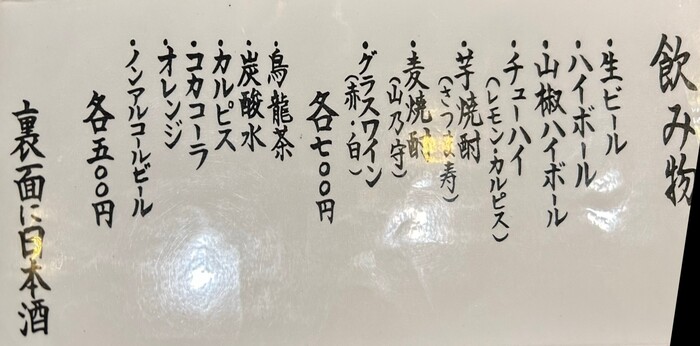 飲み物
・生ビール
・ハイボール
・山椒ハイボール
・チューハイ
(レモン・カルピス)
・芋焼酎
(さつま寿)
・麦焼酎
(山乃守)
・グラスワイン
(赤・白)
各七〇〇円
・烏龍茶
・炭酸水
・カルピス
・コカコーラ
・オレンジ
・ノンアルコールビール
各五〇〇円
裏面に日本酒